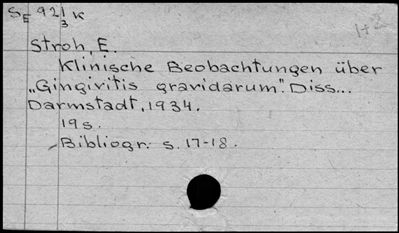 SE 921 K
3
Stroh, E.
Klinische Beobachtungen über
„Gingivitis gravidarum". Diss...
Darmstadt, 1934.
19 s.
Bibliogr. s. 17-18.